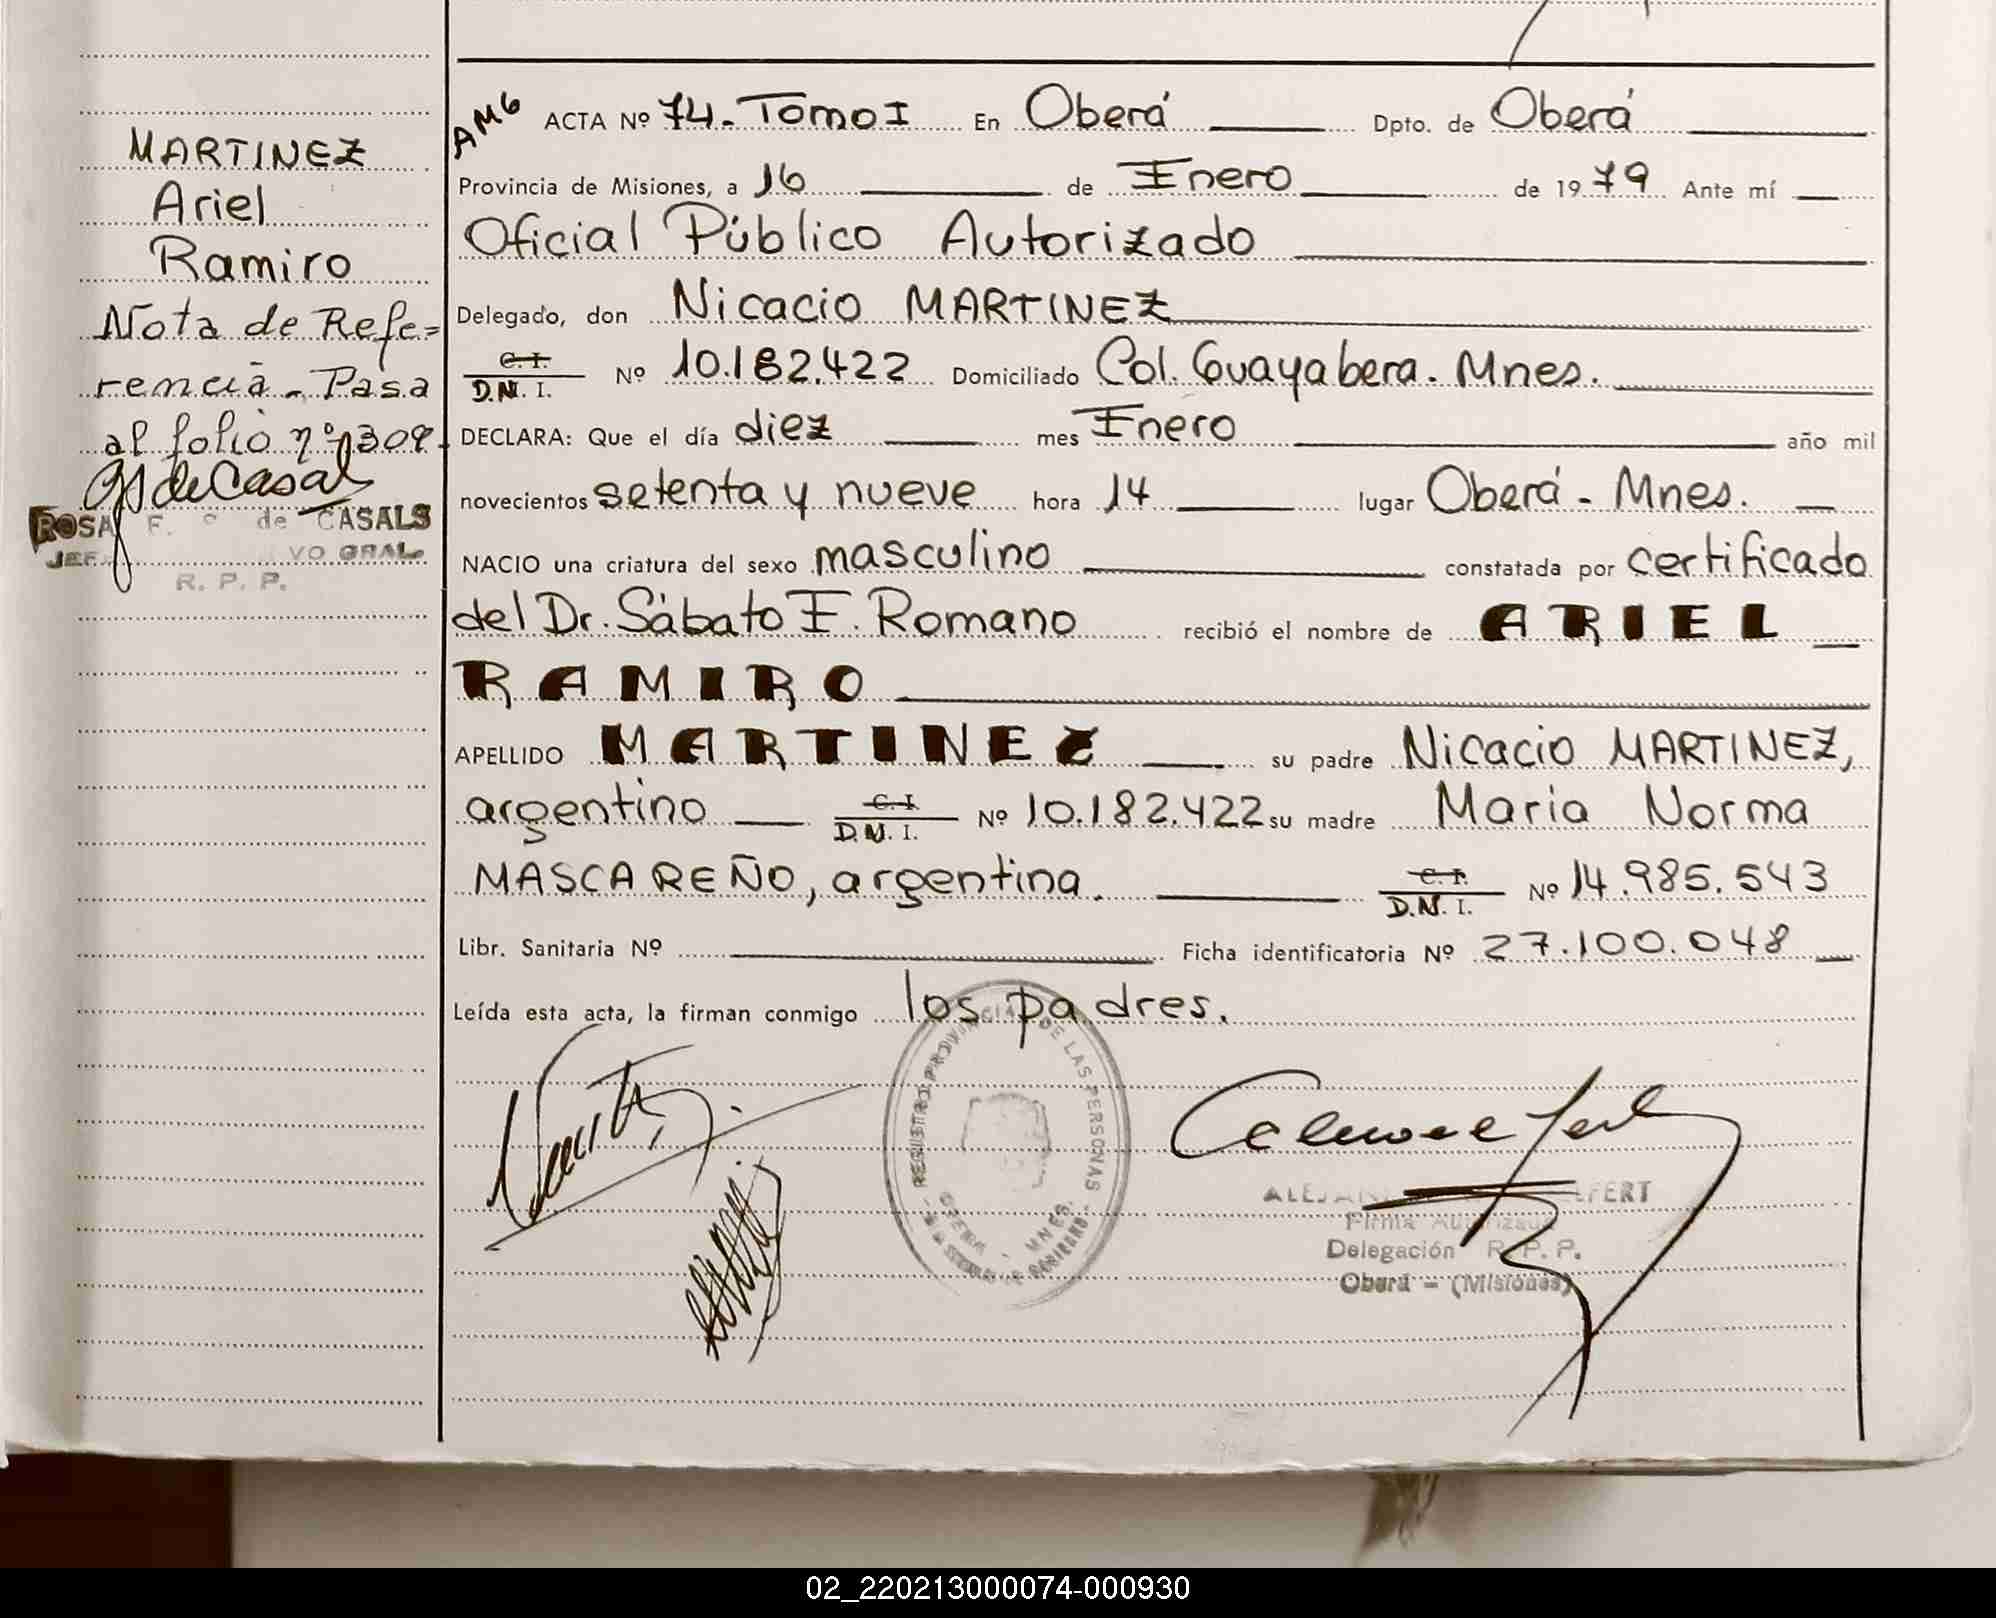 MARTINEZ
Ariel
Ramiro
Nota de Refe=
rencia - Pasa
al folio nº 309-
ROSA F. de CASALS
JEF. VO GRAL.
R. P. P.
AM6
ACTA Nº 74-Tomo I En Oberá Dpto. de Oberá
Provincia de Misiones, a 16 de Enero de 1979 Ante mí
Oficial Público Autorizado
Delegado, don Nicacio MARTINEZ
C. I.
D.N. I. Nº 10.182.422 Domiciliado Col. Guayabera. Mnes.
DECLARA: Que el día diez mes Enero año mil
novecientos setenta y nueve hora 14 lugar Oberá - Mnes.
NACIO una criatura del sexo masculino constatada por certificado
del Dr. Sábato F. Romano recibió el nombre de ARIEL
RAMIRO
APELLIDO MARTINEZ su padre Nicacio MARTINEZ,
argentino C. I. D.N. I. Nº 10.182.422 su madre Maria Norma
MASCAREÑO, argentina. C. I. D.N. I. Nº 14.985.543
Libr. Sanitaria Nº Ficha identificatoria Nº 27.100.048
Leída esta acta, la firman conmigo los padres.
REGISTRO PROVINCIAL DE LAS PERSONAS
OBERA - MNES.
Firma Autorizada
Delegación R. P. P.
Oberá - (Misiones)
02_220213000074-000930